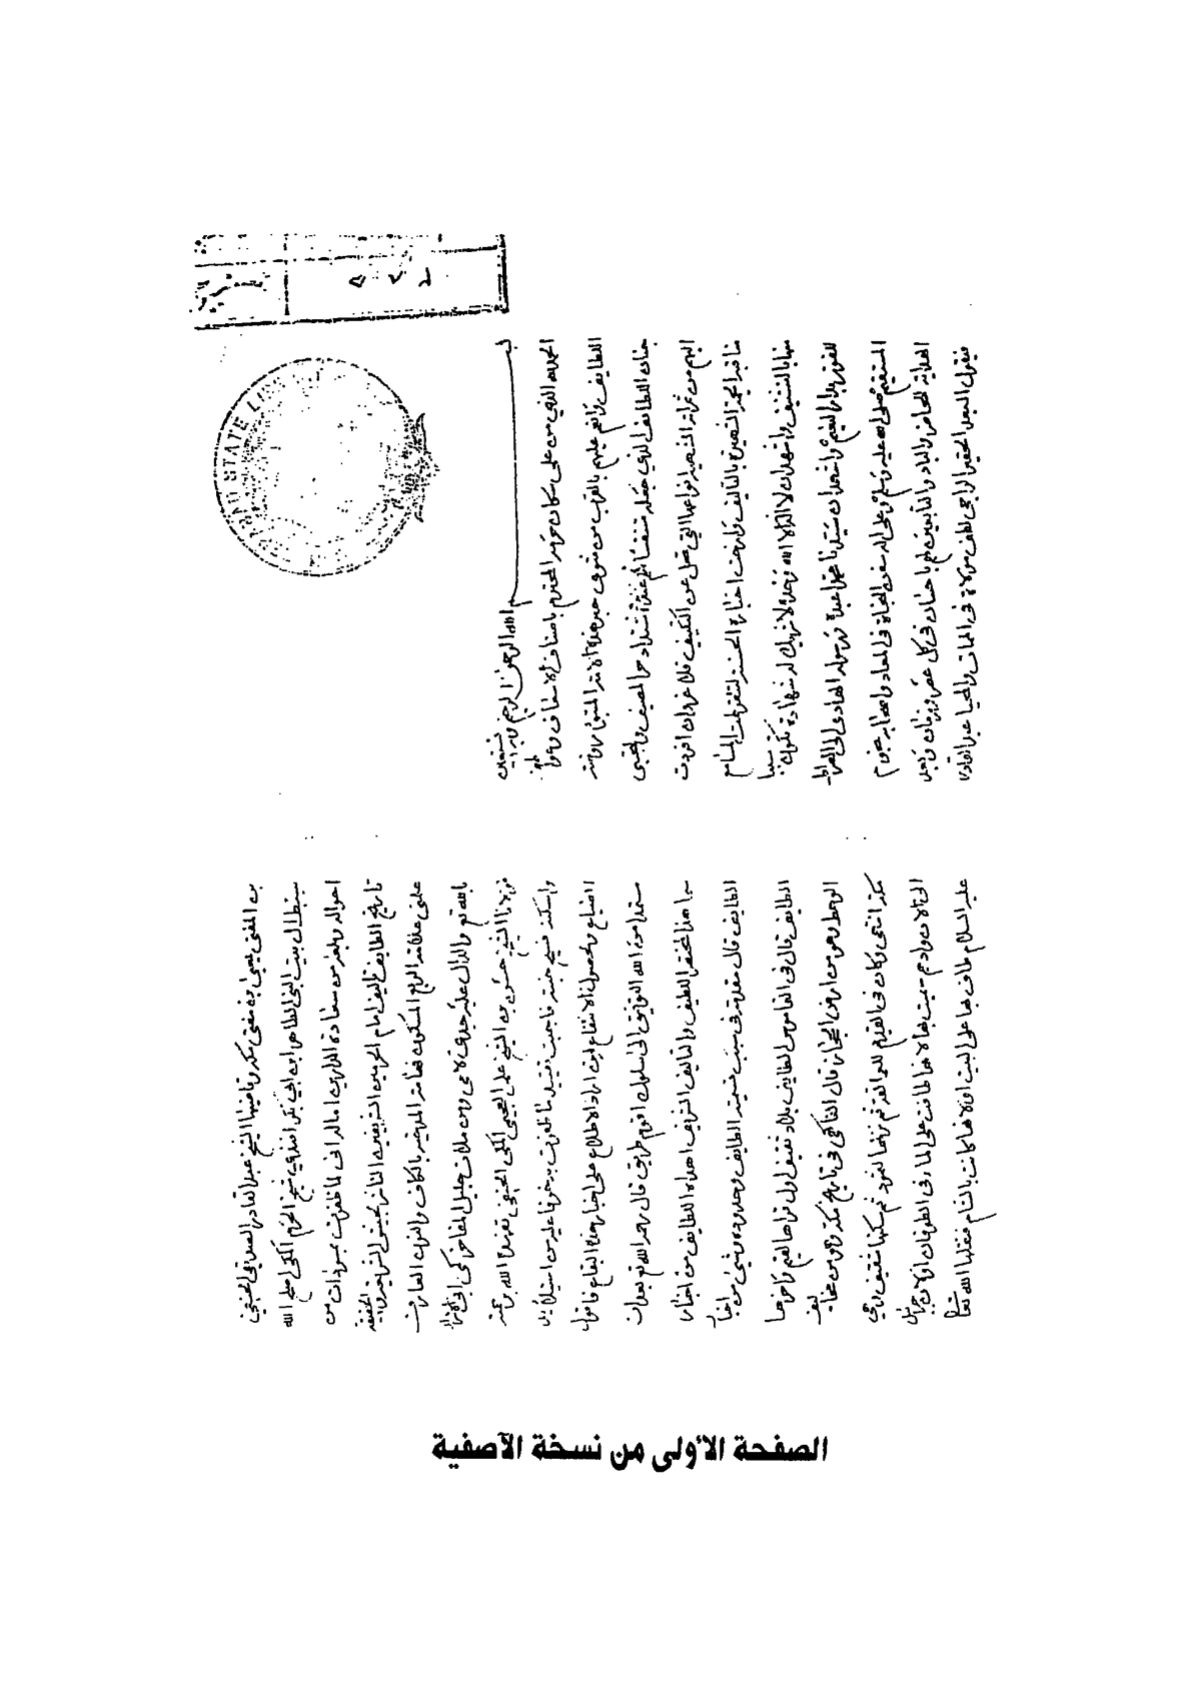 ٥٧٤
AD STATE LI
بسم الله الرحمن الرحيم وبه نستعين
الحمد لله الذي من على سكان حرمه المحترم باصناف الاسعاف وعوا
اللطايف وانعم عليهم بالقرب من مثوى حبر هذه الامة
جنان الطايف الذي جعله متنفسا لهم عند اشتداد حر المصيف
اليهم من غرائب انواعها التي تجل عن التكييف فلا غرو ان افردت
مناقبه الجمة الشهيرة بالتاليف ودونت اخباره الحسنة لتقرط المسامع
منها بالتشنيف واشهد ان لا اله الا الله وحده لا شريك له شهادة تكون سببا
للفوز بدار النعيم واشهد ان سيدنا محمدا عبده ورسوله الهادي الى الصراط
المستقيم صلى الله عليه وسلم وعلى اله سفن النجاة في المعاد واصحابه نجوم
الهداية للحاضر والباد والتابعين لهم باحسان في كل عصر وزمان وبعد
فيقول العبد الحقير الراجي لطف مولاه في الممات والمحيا عبد القادر
بن المفتي يحيى بن مفتي مكة وقاضيها الشيخ عبد القادر الصديقي الحنفي
سبط ال بيت النبي الطاهر ابن ابي بكر افندي شيخ الحرم المكي اصلح الله
احواله وبلغه من سعادة الدارين اماله اني لما ظفرت بمسودات من
تاريخ الطايف تاليف امام الحرمين الشريفين
على ملائمة الربع المسكون
بالله تعالى والدال عليه جدي لامي
مولانا الشيخ حسن بن الشيخ علي العجيمي المكي الحنفي تغمده الله برحمته
واسكنه فسيح جنته فاحببت تبييض ما ظفرت به خوفا عليه من استيلاء يد
الضياع ولحصول الانتفاع لمن اراد الاطلاع على اخبار هذه البقاع فاقول
مستمدا من الله التوفيق الى سلوك اقوم طريق قال رحمه الله تعالى بعد ان
سما هذا المختصر اللطيف والتاليف الشريف اهداء اللطايف من اخبار
الطايف قال مقدمة في سبب تسمية الطايف وحدوده وشيئ من اخبار
الطايف قال في القاموس الطايف بلاد ثقيف اول قراها لقيم واخرها
الوهط وهو من ارض الحجاز قال الفاكهي في تاريخ مكة وهو من مخاليف
مكة انتهى وكان في القديم للعمالقة ثم نزلها ثمود ثم سكنها ثقيف وهي
الى الان وادهم سميت بها لانها طافت على الماء في الطوفان او لان جبرائيل
عليه السلام طاف بها على البيت او لانها كانت بالشام فنقلها الله تعالى
الصفحة الأولى من نسخة الآصفية